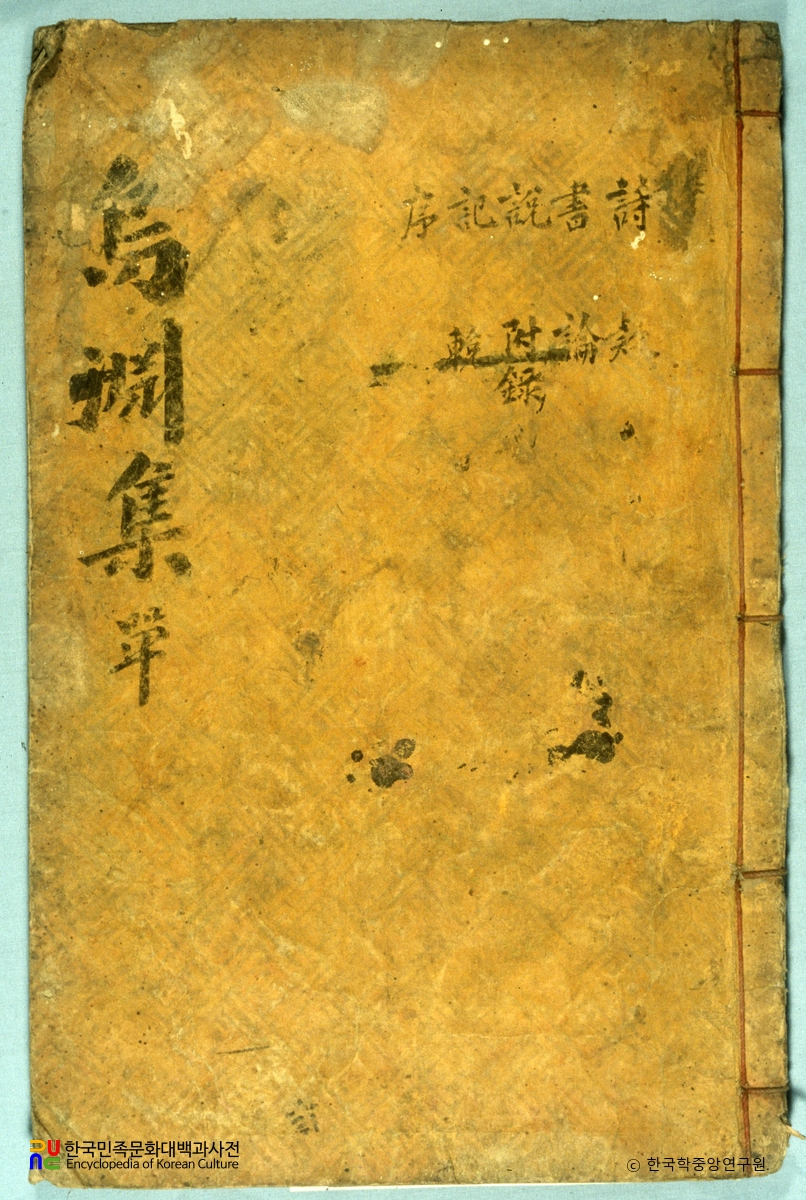 詩書說記序
論附錄輓
烏淵集單
한국민족문화대백과사전
Encyclopedia of Korean Culture
ⓒ 한국학중앙연구원